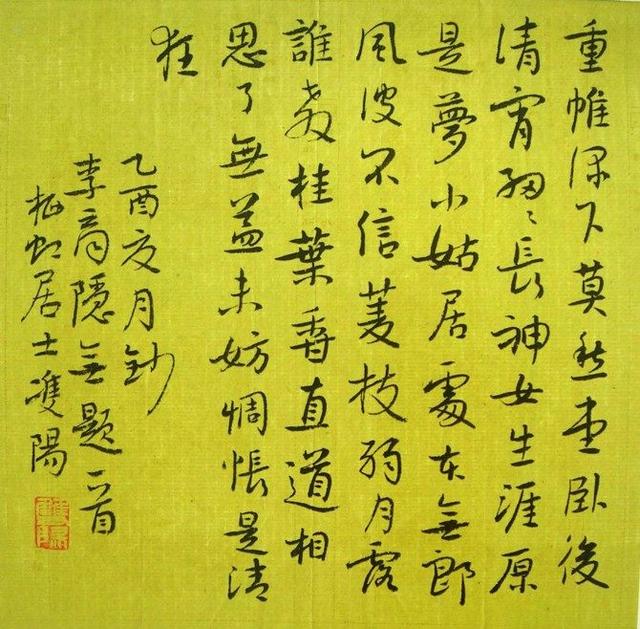 重帷深下莫愁堂臥後
清宵細〻長神女生涯原
是夢小姑居處本無郎
風波不信菱枝弱月露
誰教桂葉香直道相
思了無益未妨惆悵是清
狂
乙酉夏月鈔
李商隱無題一首
虹居士雙陽